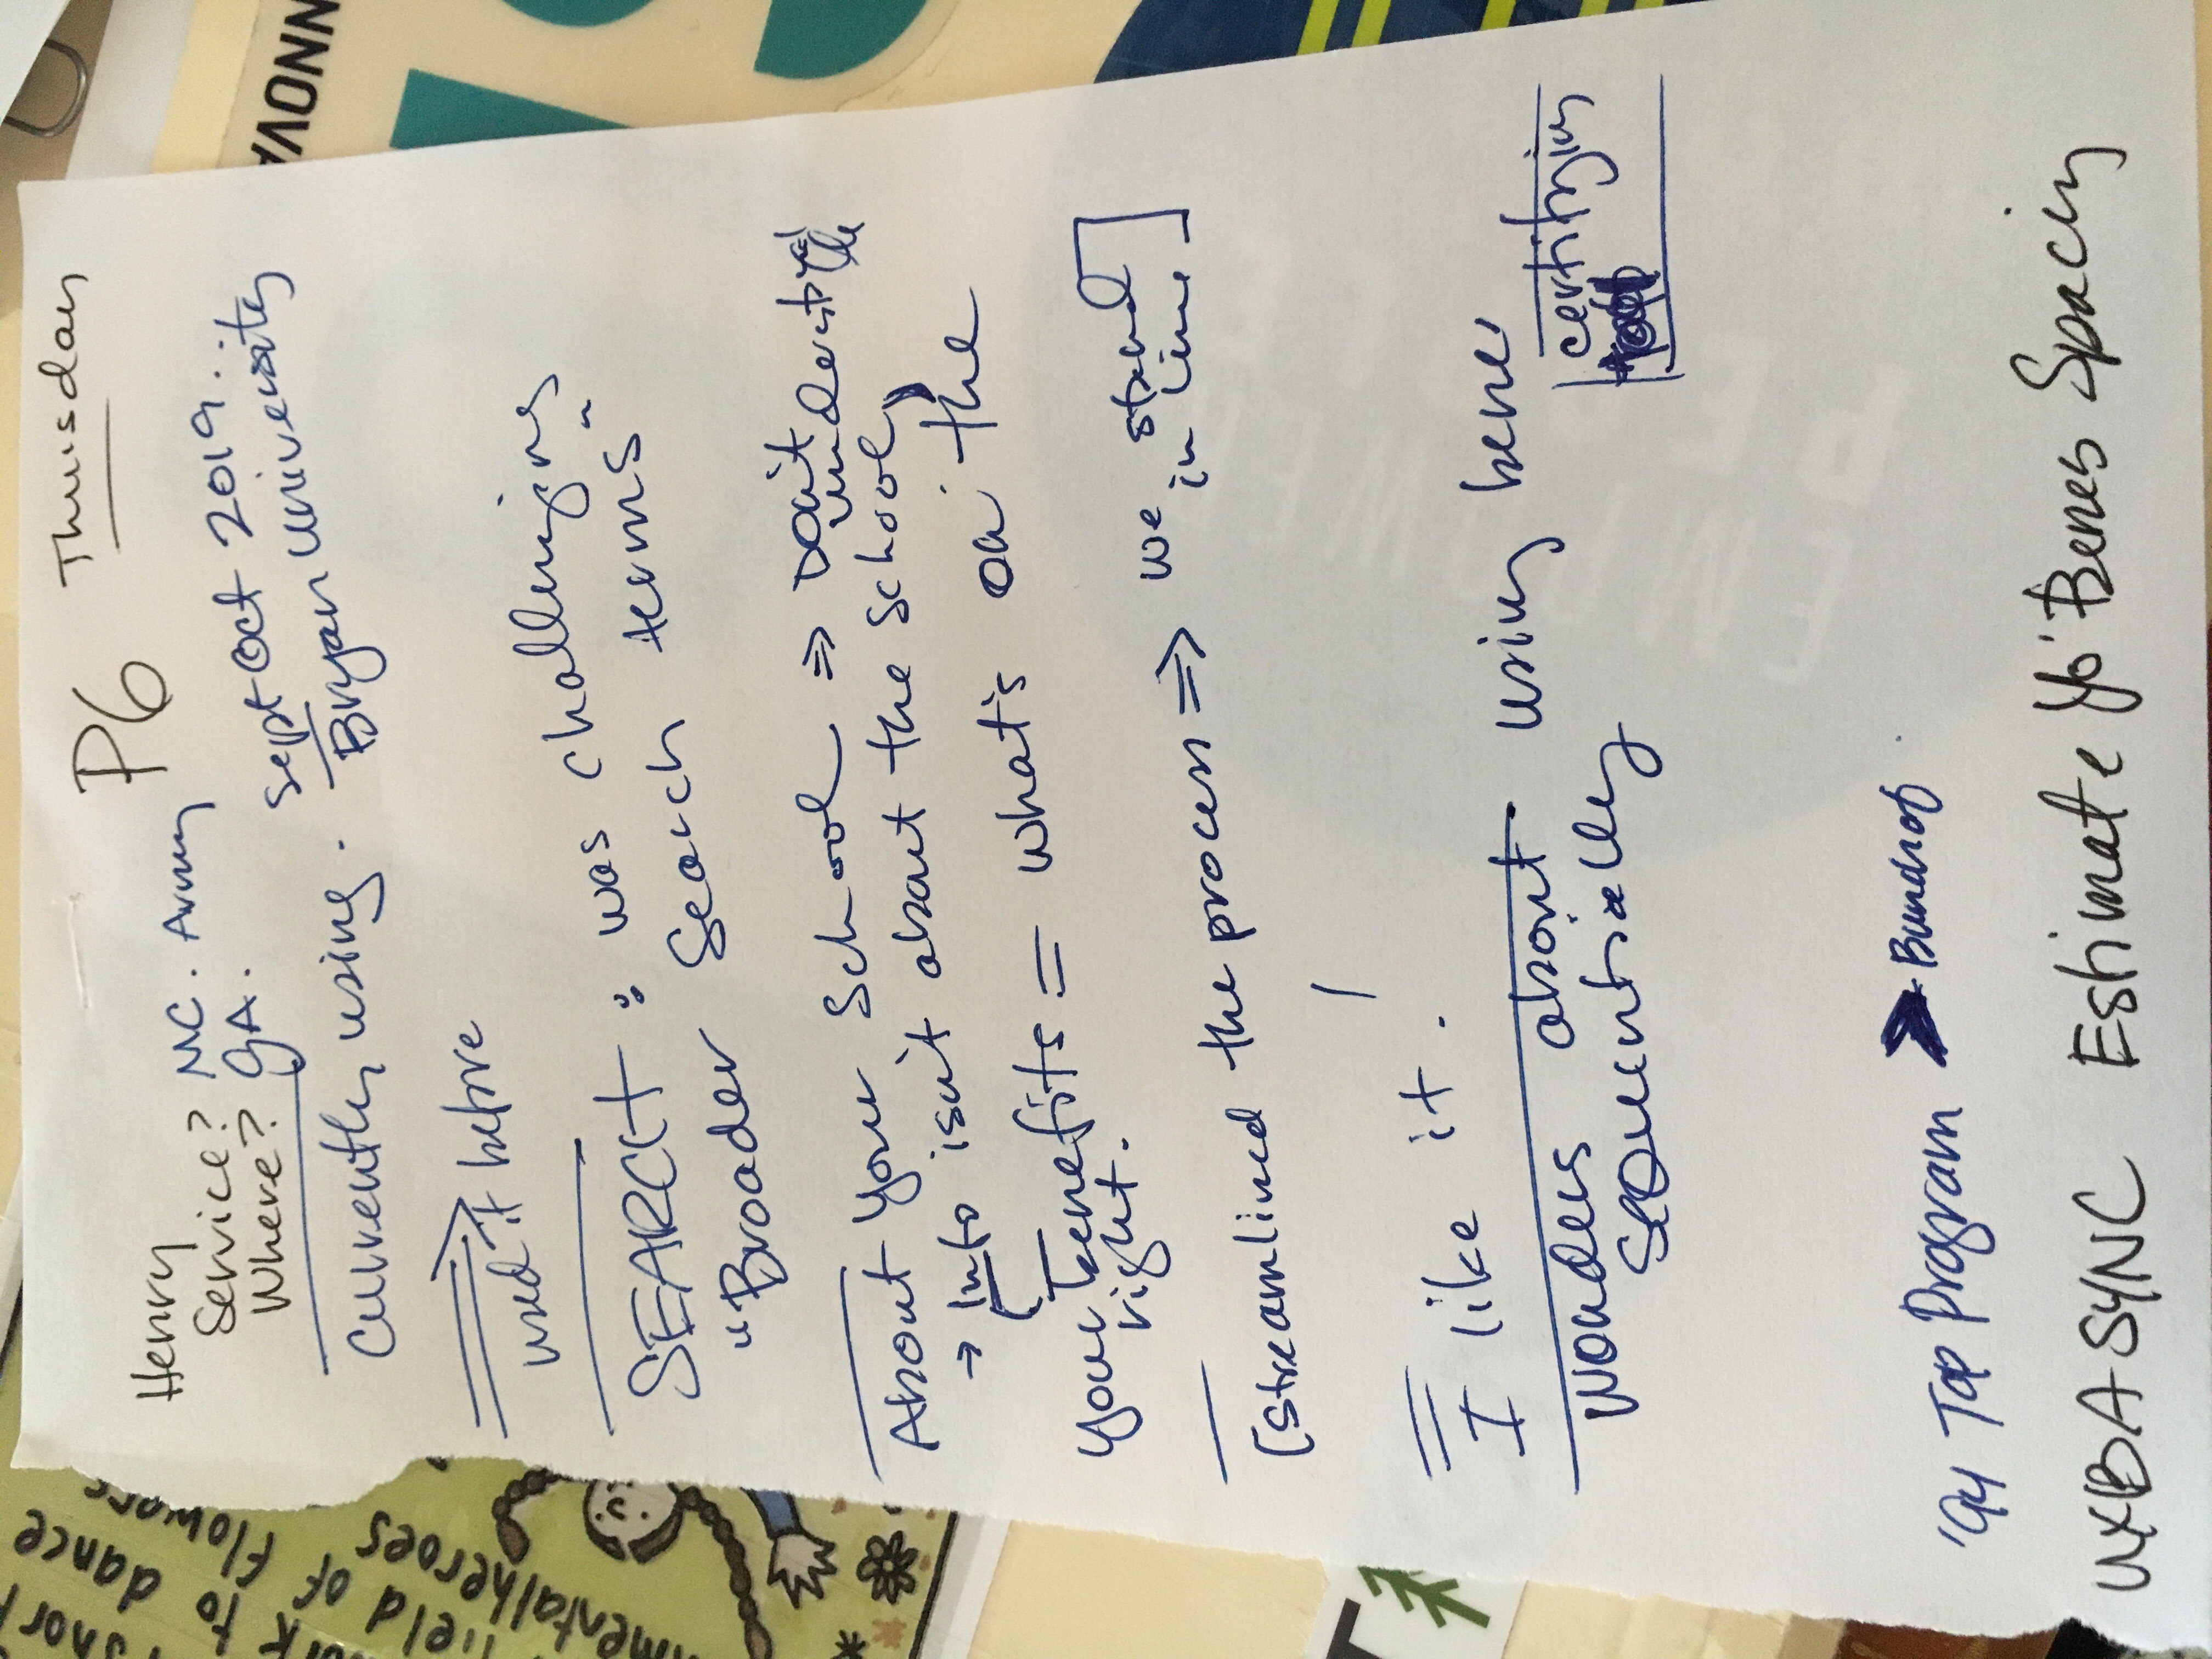 P6 Thursday
Henry
Service? MC. Army
Where? GA.
Sept Oct 2019..
Currently using. Bryan University
used it before
SEARCH: was challenging
"Broader Search terms"
About Your School ⇒ Don't
understand
→ Info isn't about the School,
Your benefits = what's on the
right.
[Streamlined the process ⇒ we stand
in line]
I like it!
Wonders about using benes
sequentially
certifying
'94 Top Program > Bunch of
UXBA SYNC Estimate Yo' Benes Spacing
NNOVA
to dance
field of flowers